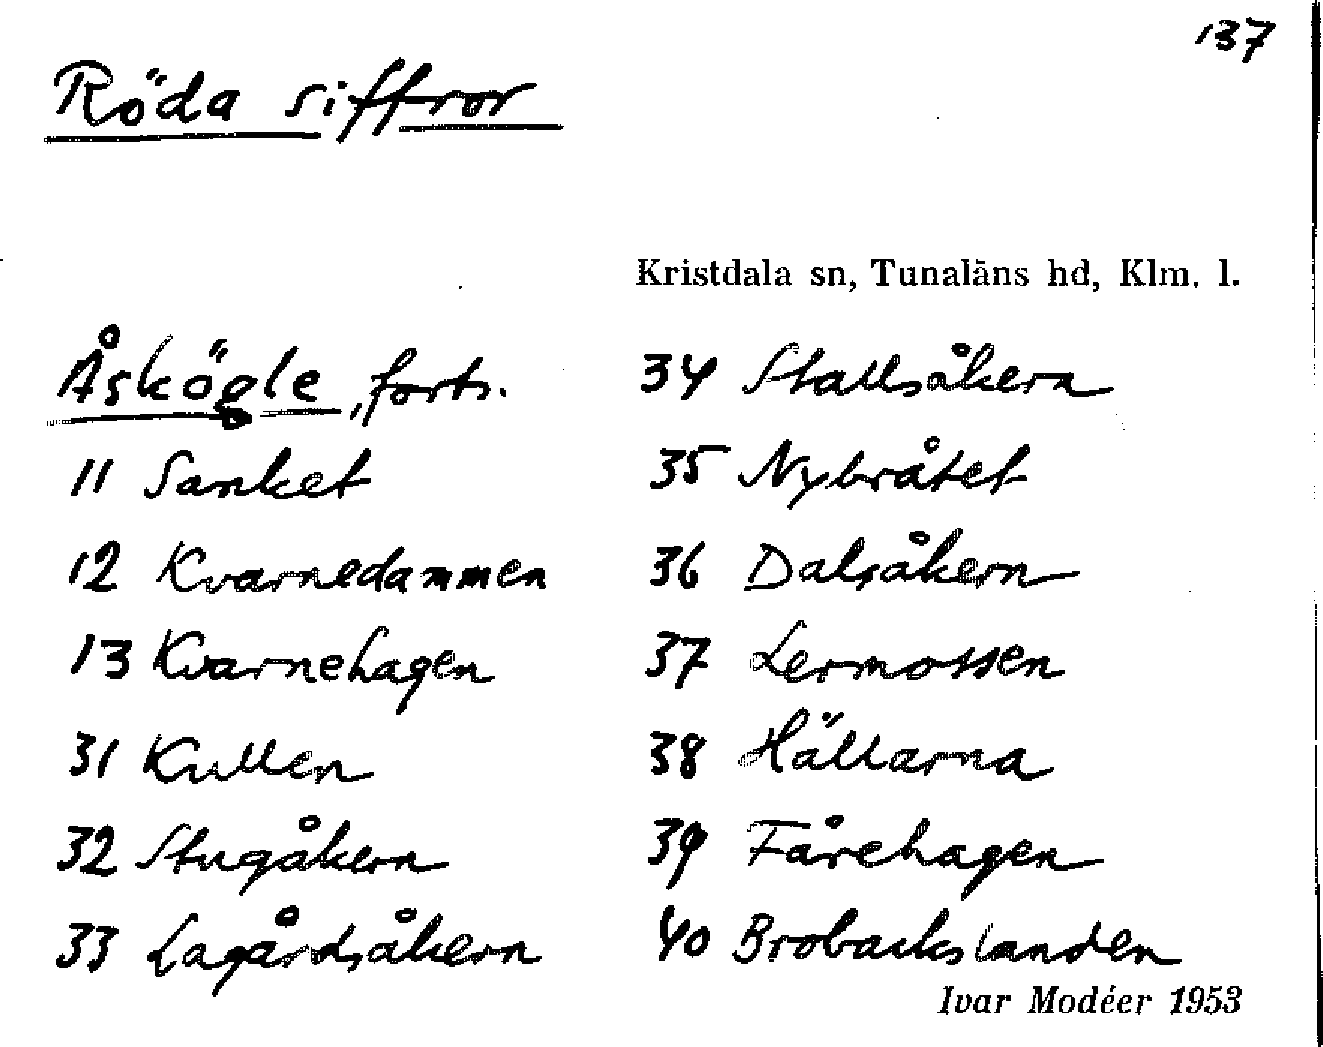 137
Röda siffror
Kristdala sn, Tunaläns hd, Klm. l.
Åskögle, forts.
11 Sanket
12 Kvarnedammen
13 Kvarnehagen
31 Kullen
32 Stugåkern
33 Lagårdsåkern
34 Stallsåkern
35 Nybråtet
36 Dalsåkern
37 Lermossen
38 Hällarna
39 Fårehagen
40 Brobackslanden
Ivar Modéer 1953